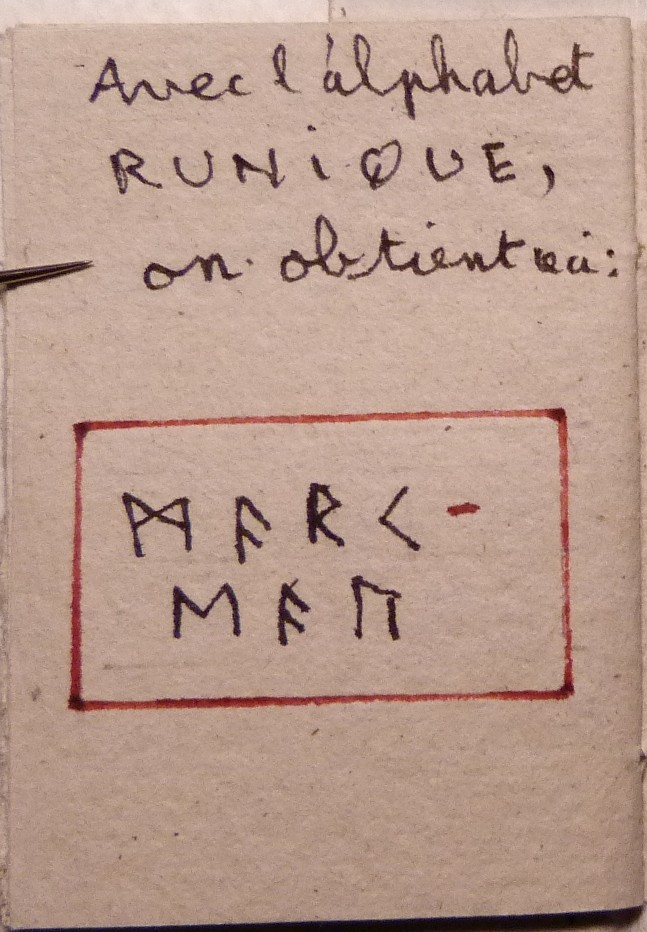 Avec l'alphabet
RUNiQUE,
on obtient ceci:
ᛗᚨᚱᚲ-
ᛖᚨᚢ